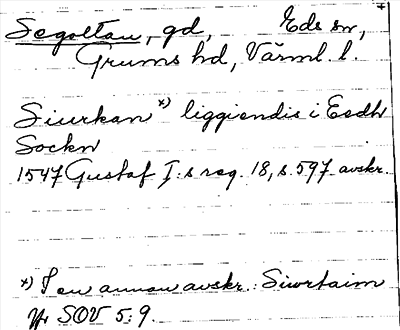 Segoltan, gd, Eds sn,
Grums hd, Värml. l.
Siurkan *) liggiendis i Eedh
Sockn
1547 Gustaf I:s reg. 18, s. 597 avskr.
*) I en annan avskr.: Siwrtaim
Jfr SOV 5:9.